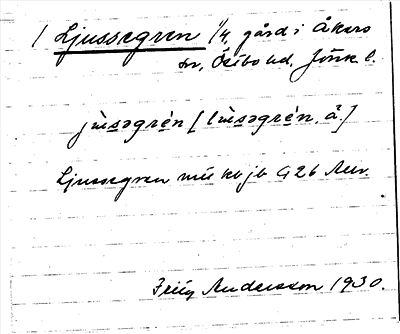 1 Ljussegren 1/4, gård i Åkers
sn, Östbo hd, Jönk l.
jùsəgrén [lùsəgrén, å.]
Ljussegren mtl kv jb 426 Anv.
Fritz Andersson 1930.